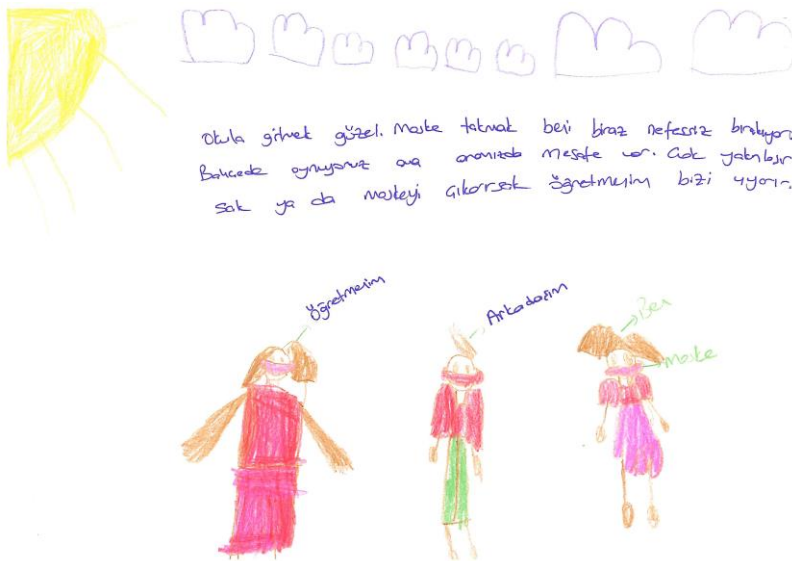 Okula gitmek güzel. Maske takmak beni biraz nefessiz bırakıyor.
Bahcede oynuyoruz ama aramızda mesafe var. Çok yaknlaşır
sak ya da maskeyi çıkarırsak öğretmenim bizi uyarıyor.
Öğretmenim
Arkadaşım
Ben
Maske